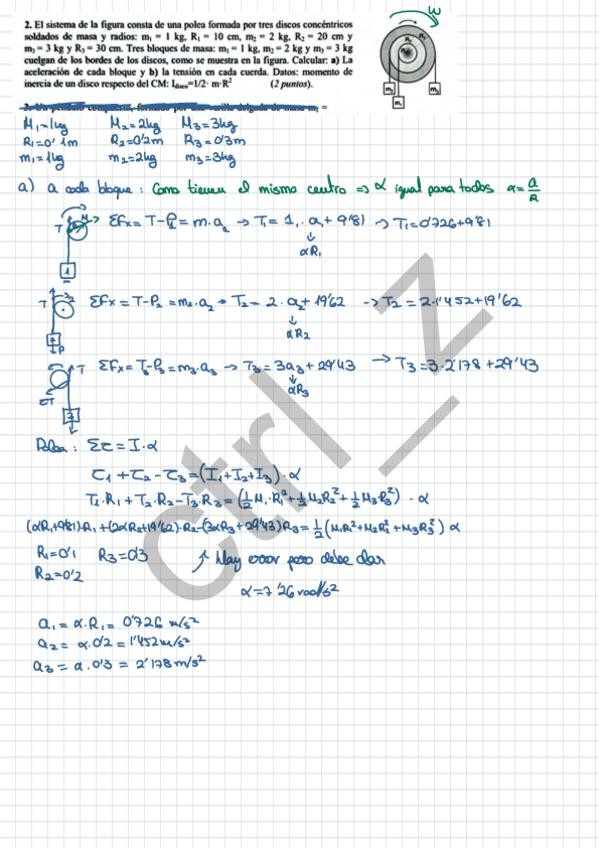 2. El sistema de la figura consta de una polea formada por tres discos concéntricos
soldados de masa y radios: m₁ = 1 kg, R₁ = 10 cm, m₂ = 2 kg, R₂ = 20 cm y
m₃ = 3 kg y R₃ = 30 cm. Tres bloques de masa: m₁ = 1 kg, m₂ = 2 kg y m₃ = 3 kg
cuelgan de los bordes de los discos, como se muestra en la figura. Calcular: a) La
aceleración de cada bloque y b) la tensión en cada cuerda. Datos: momento de
inercia de un disco respecto del CM: I_disco=1/2· m·R² (2 puntos).
ω
M₁=1kg M₂=2kg M₃=3kg
R₁=0'1m R₂=0'2m R₃=0'3m
m₁=1kg m₂=2kg m₃=3kg
a) a cada bloque: Como tienen el mismo centro => α igual para todos α=a/R
ΣFx = T-P = m·a → T₁ = 1·a₁+9'81 → T₁=0'726+9'81
αR₁
ΣFx = T-P₂ = m₂·a₂ → T₂ = 2·a₂+19'62 → T₂=2·1'452+19'62
αR₂
ΣFx = T₃-P₃ = m₃·a₃ → T₃ = 3a₃+29'43 → T₃=3·2'178+29'43
αR₃
Polea: Στ = I·α
τ₁+τ₂-τ₃=(I₁+I₂+I₃)·α
T₁·R₁+T₂·R₂-T₃·R₃=(½M₁·R₁²+½M₂R₂²+½M₃R₃²)·α
(αR₁+9'81)·R₁+(2αR₂+19'62)·R₂-(3αR₃+29'43)R₃=½(M₁R₁²+M₂R₂²+M₃R₃²)α
R₁=0'1 R₃=0'3 ↑ Hay error pero debe dar
R₂=0'2 α=7'26 rad/s²
a₁ = α·R₁ = 0'726 m/s²
a₂ = α·0'2 = 1'452 m/s²
a₃ = α·0'3 = 2'178 m/s²
Ctrl_Z